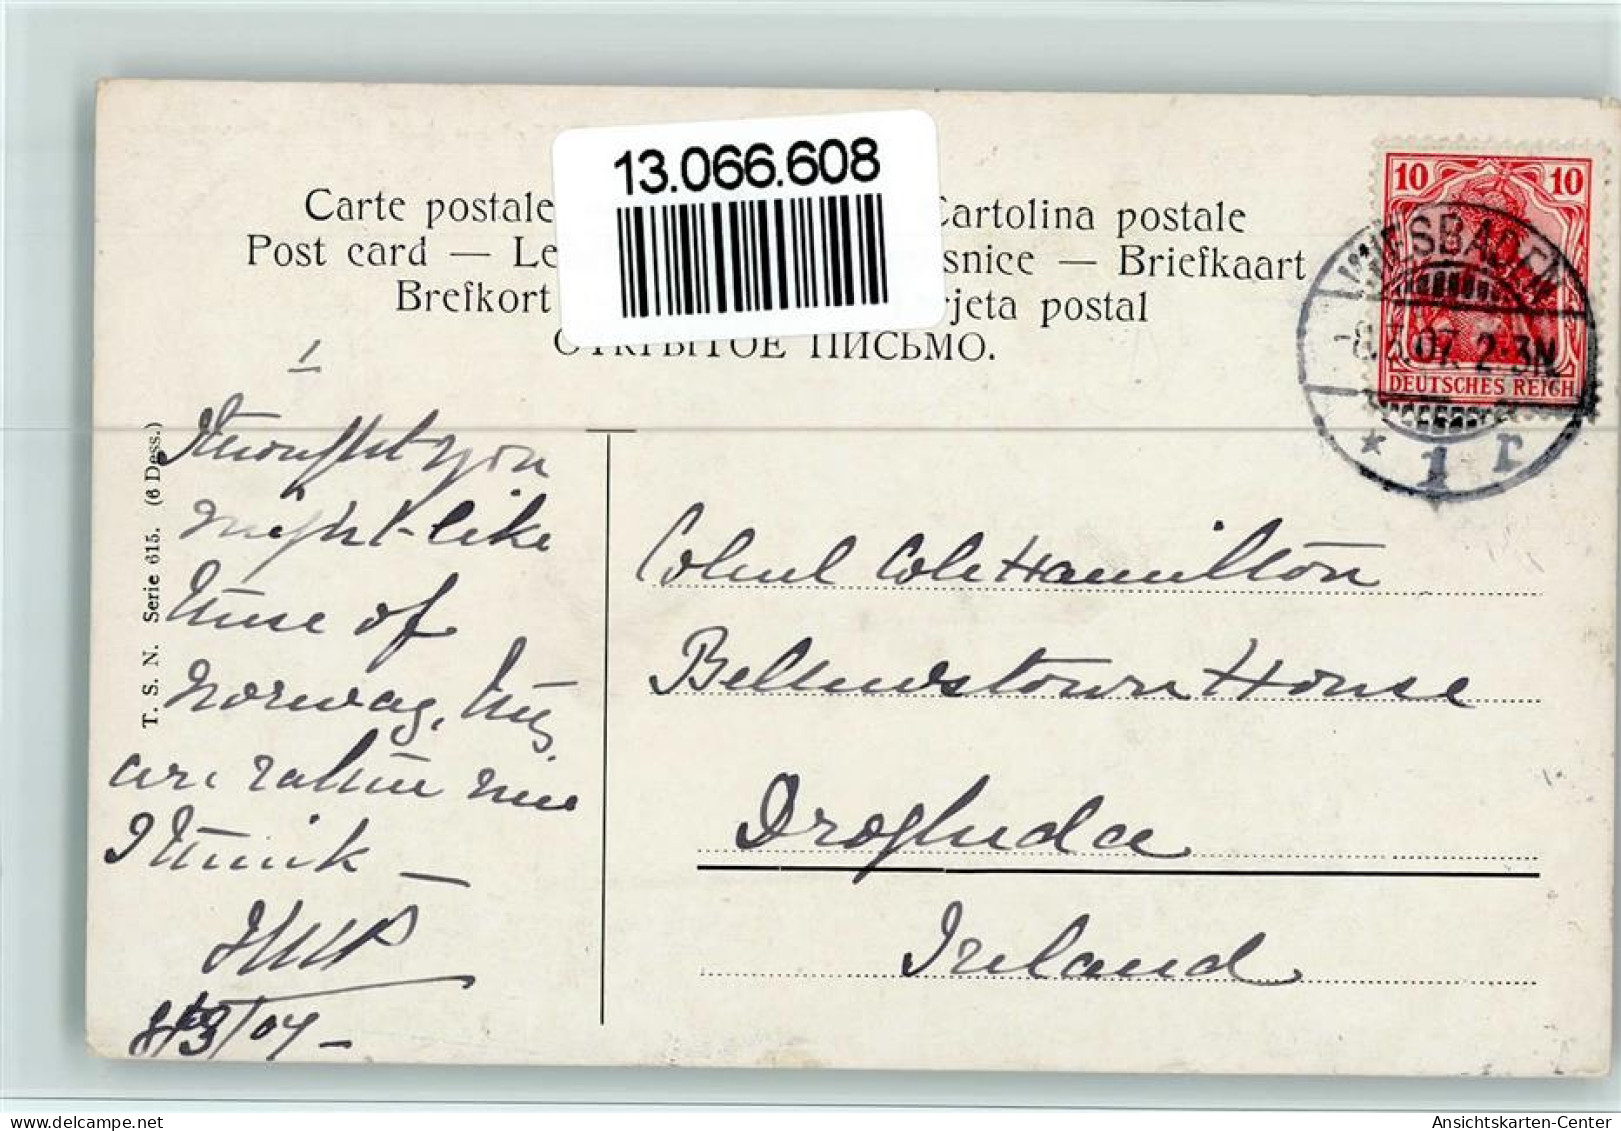 13.066.608
Carte postale Cartolina postale
Post card — Le snice — Briefkaart
Brefkort rjeta postal
ОТКРЫТОЕ ПИСЬМО.
10 10
DEUTSCHES REICH
WIESBADEN
-8.3.07. 2-3N.
* 1 r
T. S. N. Serie 615. (6 Dess.)
1
I thought you
might like
these of
Norway, they
are rather nice
I think —
8/3/07 -
Colonel Cole Hamilton
Bellewstown House
Drogheda
Ireland
Ansichtskarten-Center